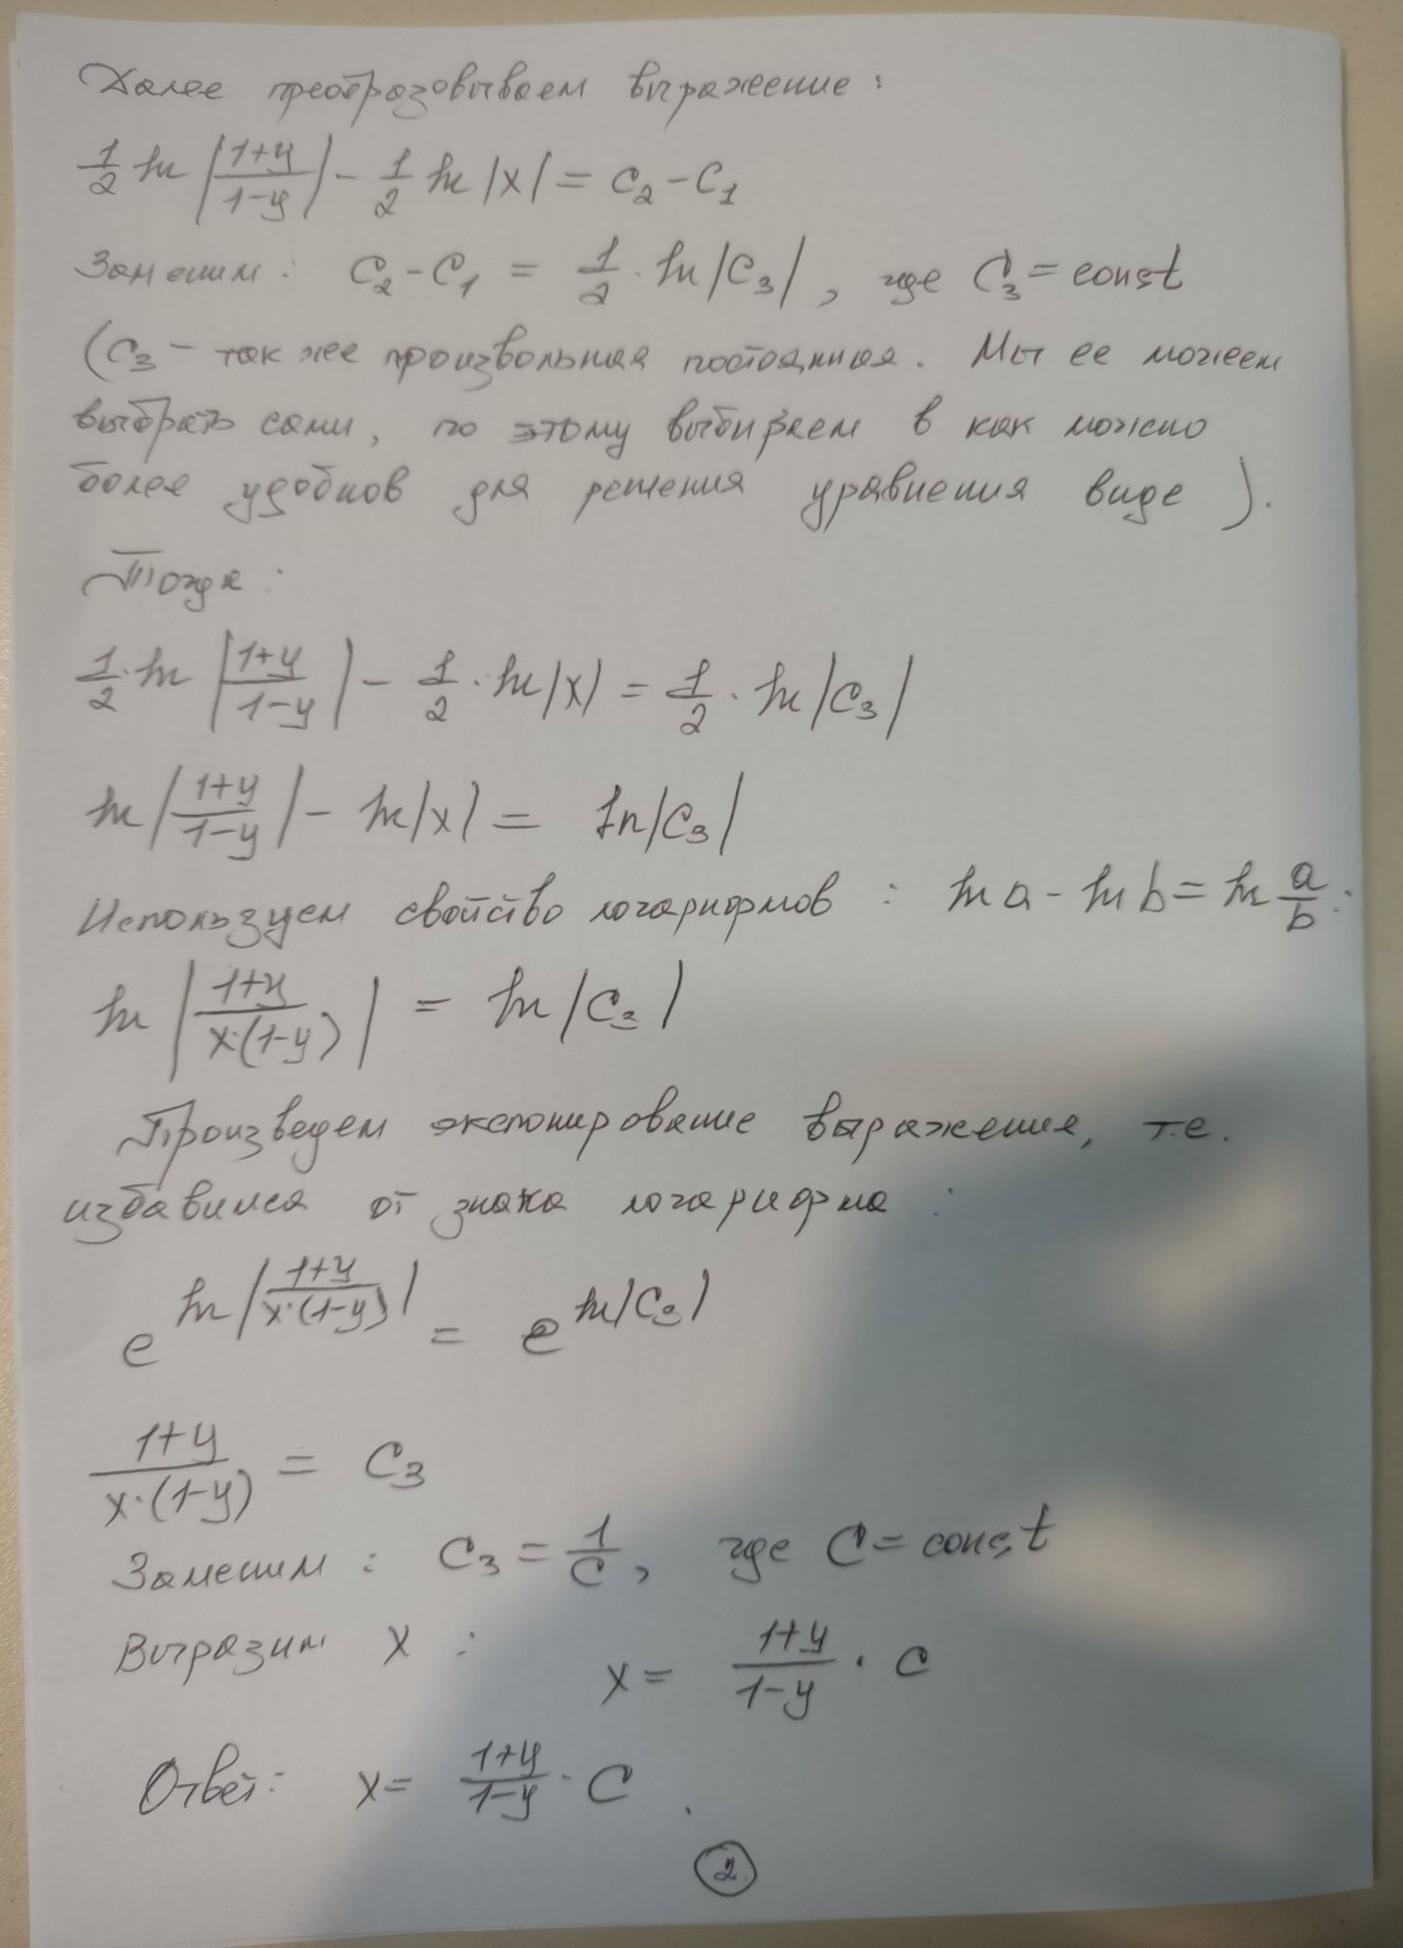 Далее преобразовываем выражение:
1/2 ln |(1+y)/(1-y)| - 1/2 ln |x| = c₂ - c₁
Заменим: c₂ - c₁ = 1/2 · ln |c₃|, где C₃ = const
(c₃ - так же произвольная постоянная. Мы ее можем
выбрать сами, по этому выбираем в как можно
более удобнов для решения уравнения виде).
Тогда:
1/2 · ln |(1+y)/(1-y)| - 1/2 · ln |x| = 1/2 · ln |c₃|
ln |(1+y)/(1-y)| - ln |x| = ln |c₃|
Используем свойство логарифмов: ln a - ln b = ln a/b:
ln |(1+y)/(x·(1-y))| = ln |c₃|
Произведем экспонирование выражения, т.е.
избавимся от знака логарифма:
e^(ln |(1+y)/(x·(1-y))|) = e^(ln |c₃|)
(1+y)/(x·(1-y)) = c₃
Заменим: c₃ = 1/c, где C = const
Выразим x: x = (1+y)/(1-y) · c
Ответ: x = (1+y)/(1-y) · C.
2